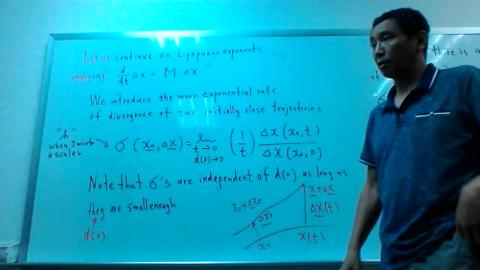 Let us continue on Lyapunov exponents
employing d/dt Δx = M · Δx
We introduce the mean exponential rate
of divergence of two initially close trajectories
"h"
when I wrote
a scalar
σ (x₀, Δx) = lim (1/t) Δx(x₀,t) / Δx(x₀,0)
t→0
d(0)→0
Note that σ's are independent of d(0) as long as
they are small enough
d(0)
x₀+Δx₀
Δx₀
x₀
x+Δx
Δx(t)
x(t)
there is a
of